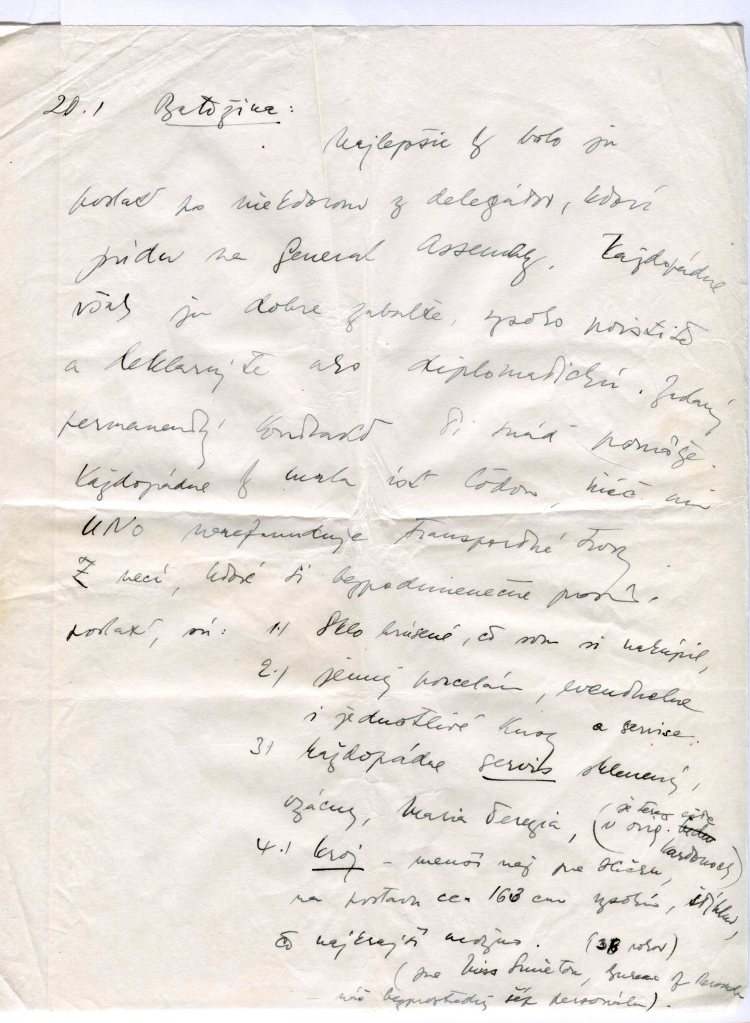 20.) Batožina:
Najlepšie by bolo ju
poslať po niektorom z delegátov, ktorí
prídu na General Assembly. Každopádne
však ju dobre zabaľte, vysoko poistite
a deklarujte ako diplomatickú.
permanentný kontrakt Ti snáď pomôže.
Každopádne by mala ísť loďou, nič mi
UNO transportné trovy
Z vecí, ktoré si bezpodmienečne prosím
poslať, sú: 1) Sklo brúsené, čo som si nakúpil,
2.) jemný porcelán, eventuelne
i jednotlivé kusy a servise.
3) Každopádne servis sklenený,
vzácny, Maria Terezia, (je teraz ešte
v orig. kartonoch)
4.) kroj – menší než pre Vieru,
na postavu cca 163 cm vysokú, štíhlu,
čo najkrajší možno. (38 rokov)
(pre Miss Smieton, Bureau of Personnel
náš bezprostredný šéf personálu).